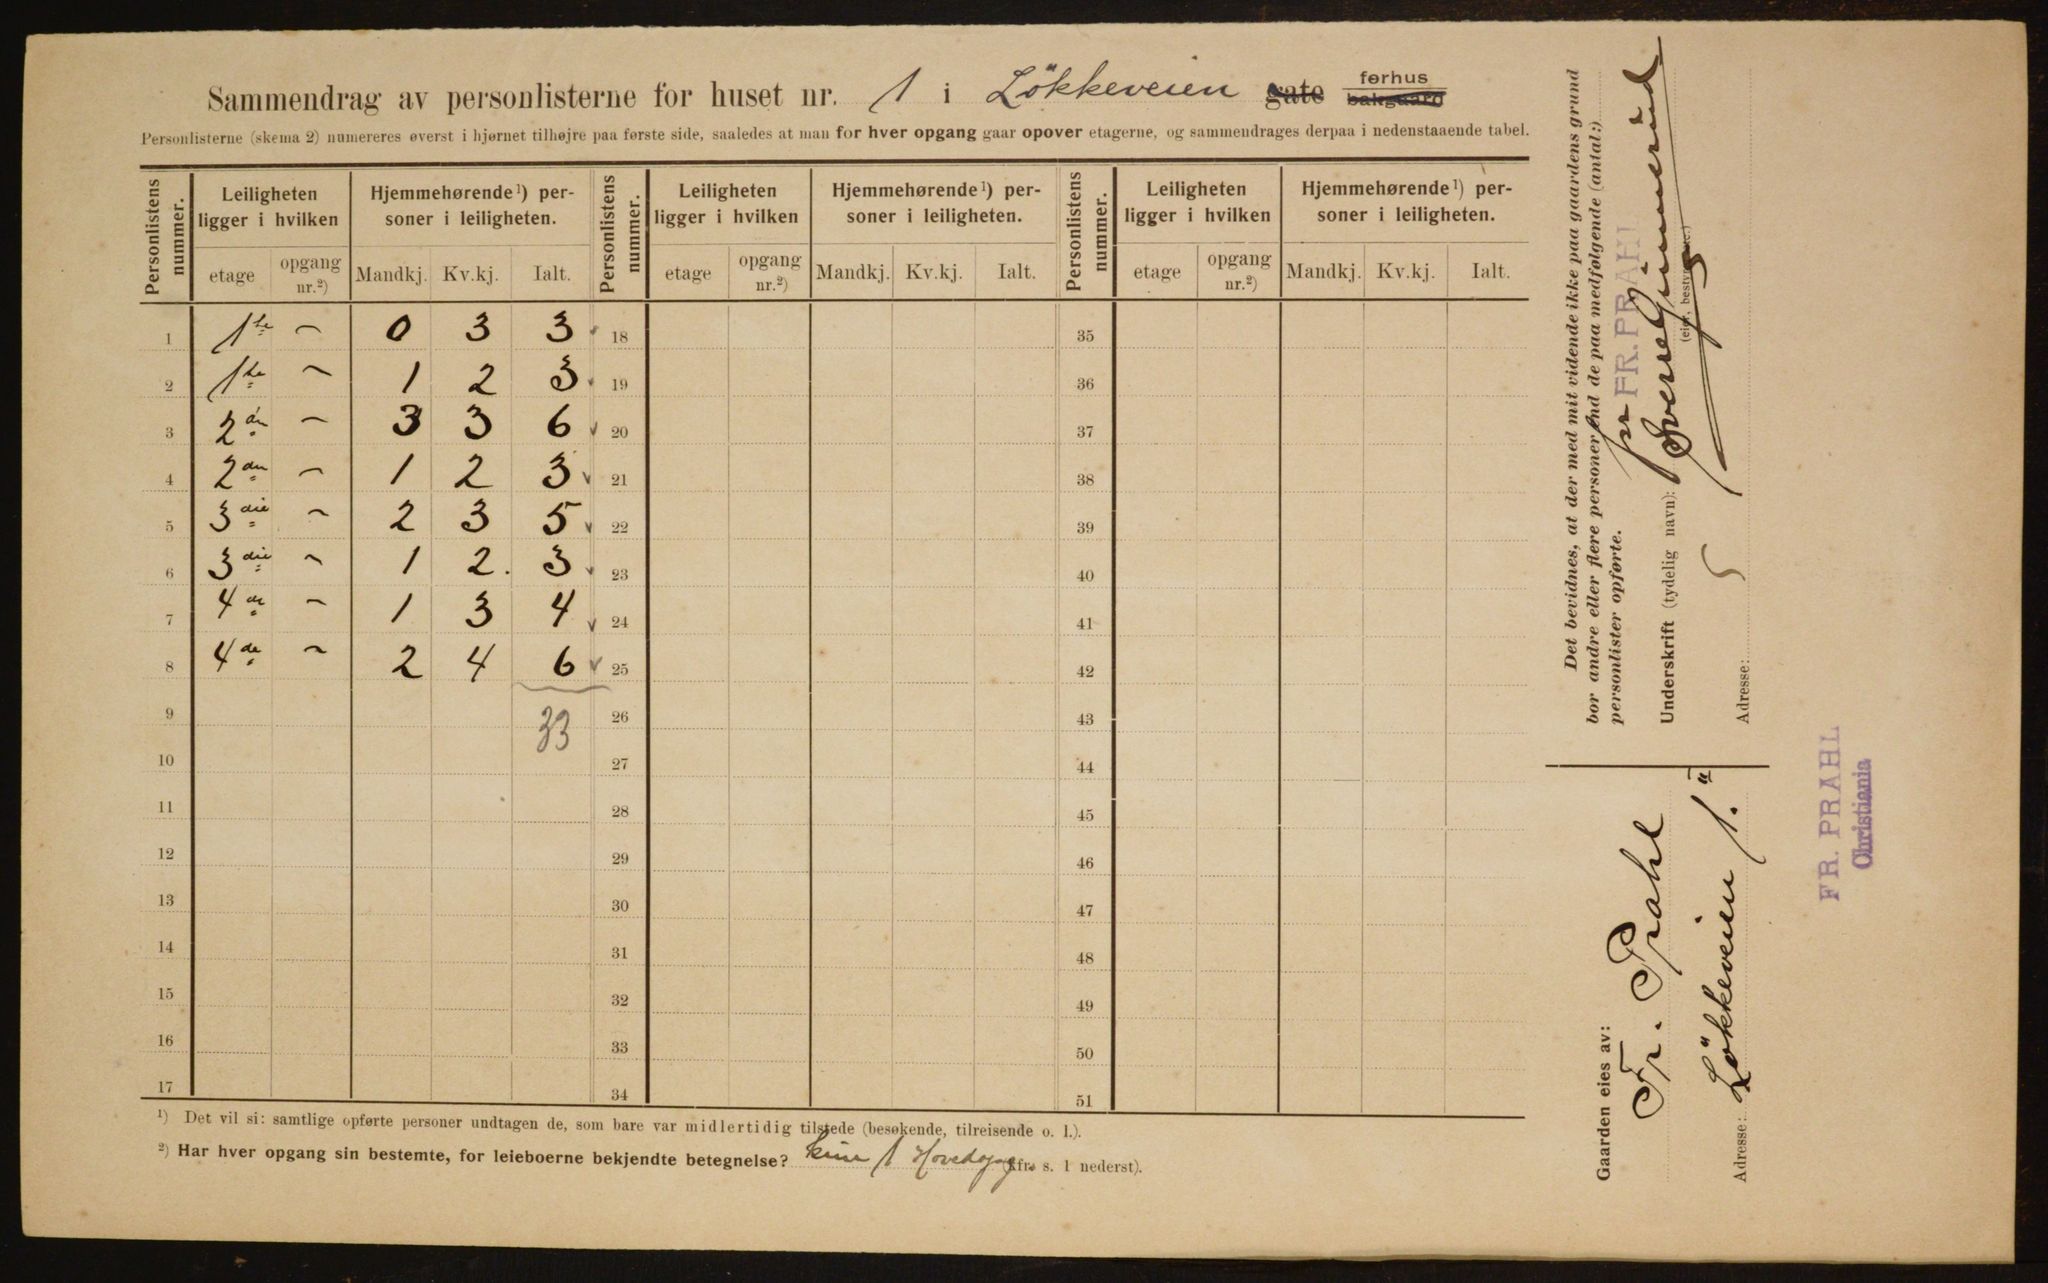 Sammendrag av personlisterne for huset nr. 1 i Lökkeveien gate forhus bakgaard
Personlisterne (skema 2) numereres øverst i hjørnet tilhøjre paa første side, saaledes at man for hver opgang gaar opover etagerne, og sammendrages derpaa i nedenstaaende tabel.
Personlistens nummer. Leiligheten ligger i hvilken Hjemmehørende ¹) personer i leiligheten. Personlistens nummer. Leiligheten ligger i hvilken Hjemmehørende ¹) personer i leiligheten. Personlistens nummer. Leiligheten ligger i hvilken Hjemmehørende ¹) personer i leiligheten.
etage opgang nr.²) Mandkj. Kv.kj. Ialt. etage opgang nr.²) Mandkj. Kv.kj. Ialt. etage opgang nr.²) Mandkj. Kv.kj. Ialt.
1 1ste ~ 0 3 3 18 35
2 1ste ~ 1 2 3 19 36
3 2den ~ 3 3 6 20 37
4 2den ~ 1 2 3 21 38
5 3die ~ 2 3 5 22 39
6 3die ~ 1 2. 3 23 40
7 4de ~ 1 3 4 24 41
8 4de ~ 2 4 6 25 42
9 33 26 43
10 27 44
11 28 45
12 29 46
13 30 47
14 31 48
15 32 49
16 33 50
17 34 51
¹) Det vil si: samtlige opførte personer undtagen de, som bare var midlertidig tilstede (besøkende, tilreisende o. l.).
²) Har hver opgang sin bestemte, for leieboerne bekjendte betegnelse? kun 1 Hovedopg. (kfr. s. 1 nederst).
Det bevidnes, at der med mit vidende ikke paa gaardens grund
bor andre eller flere personer end de paa medfølgende (antal:)
personlister opførte.
pr FR. PRAHL
Underskrift (tydelig navn):
(eier, bestyrer etc.)
Adresse:
Gaarden eies av:
Fr. Prahl
Adresse: Lökkeveien 1.
FR. PRAHL
Christiania